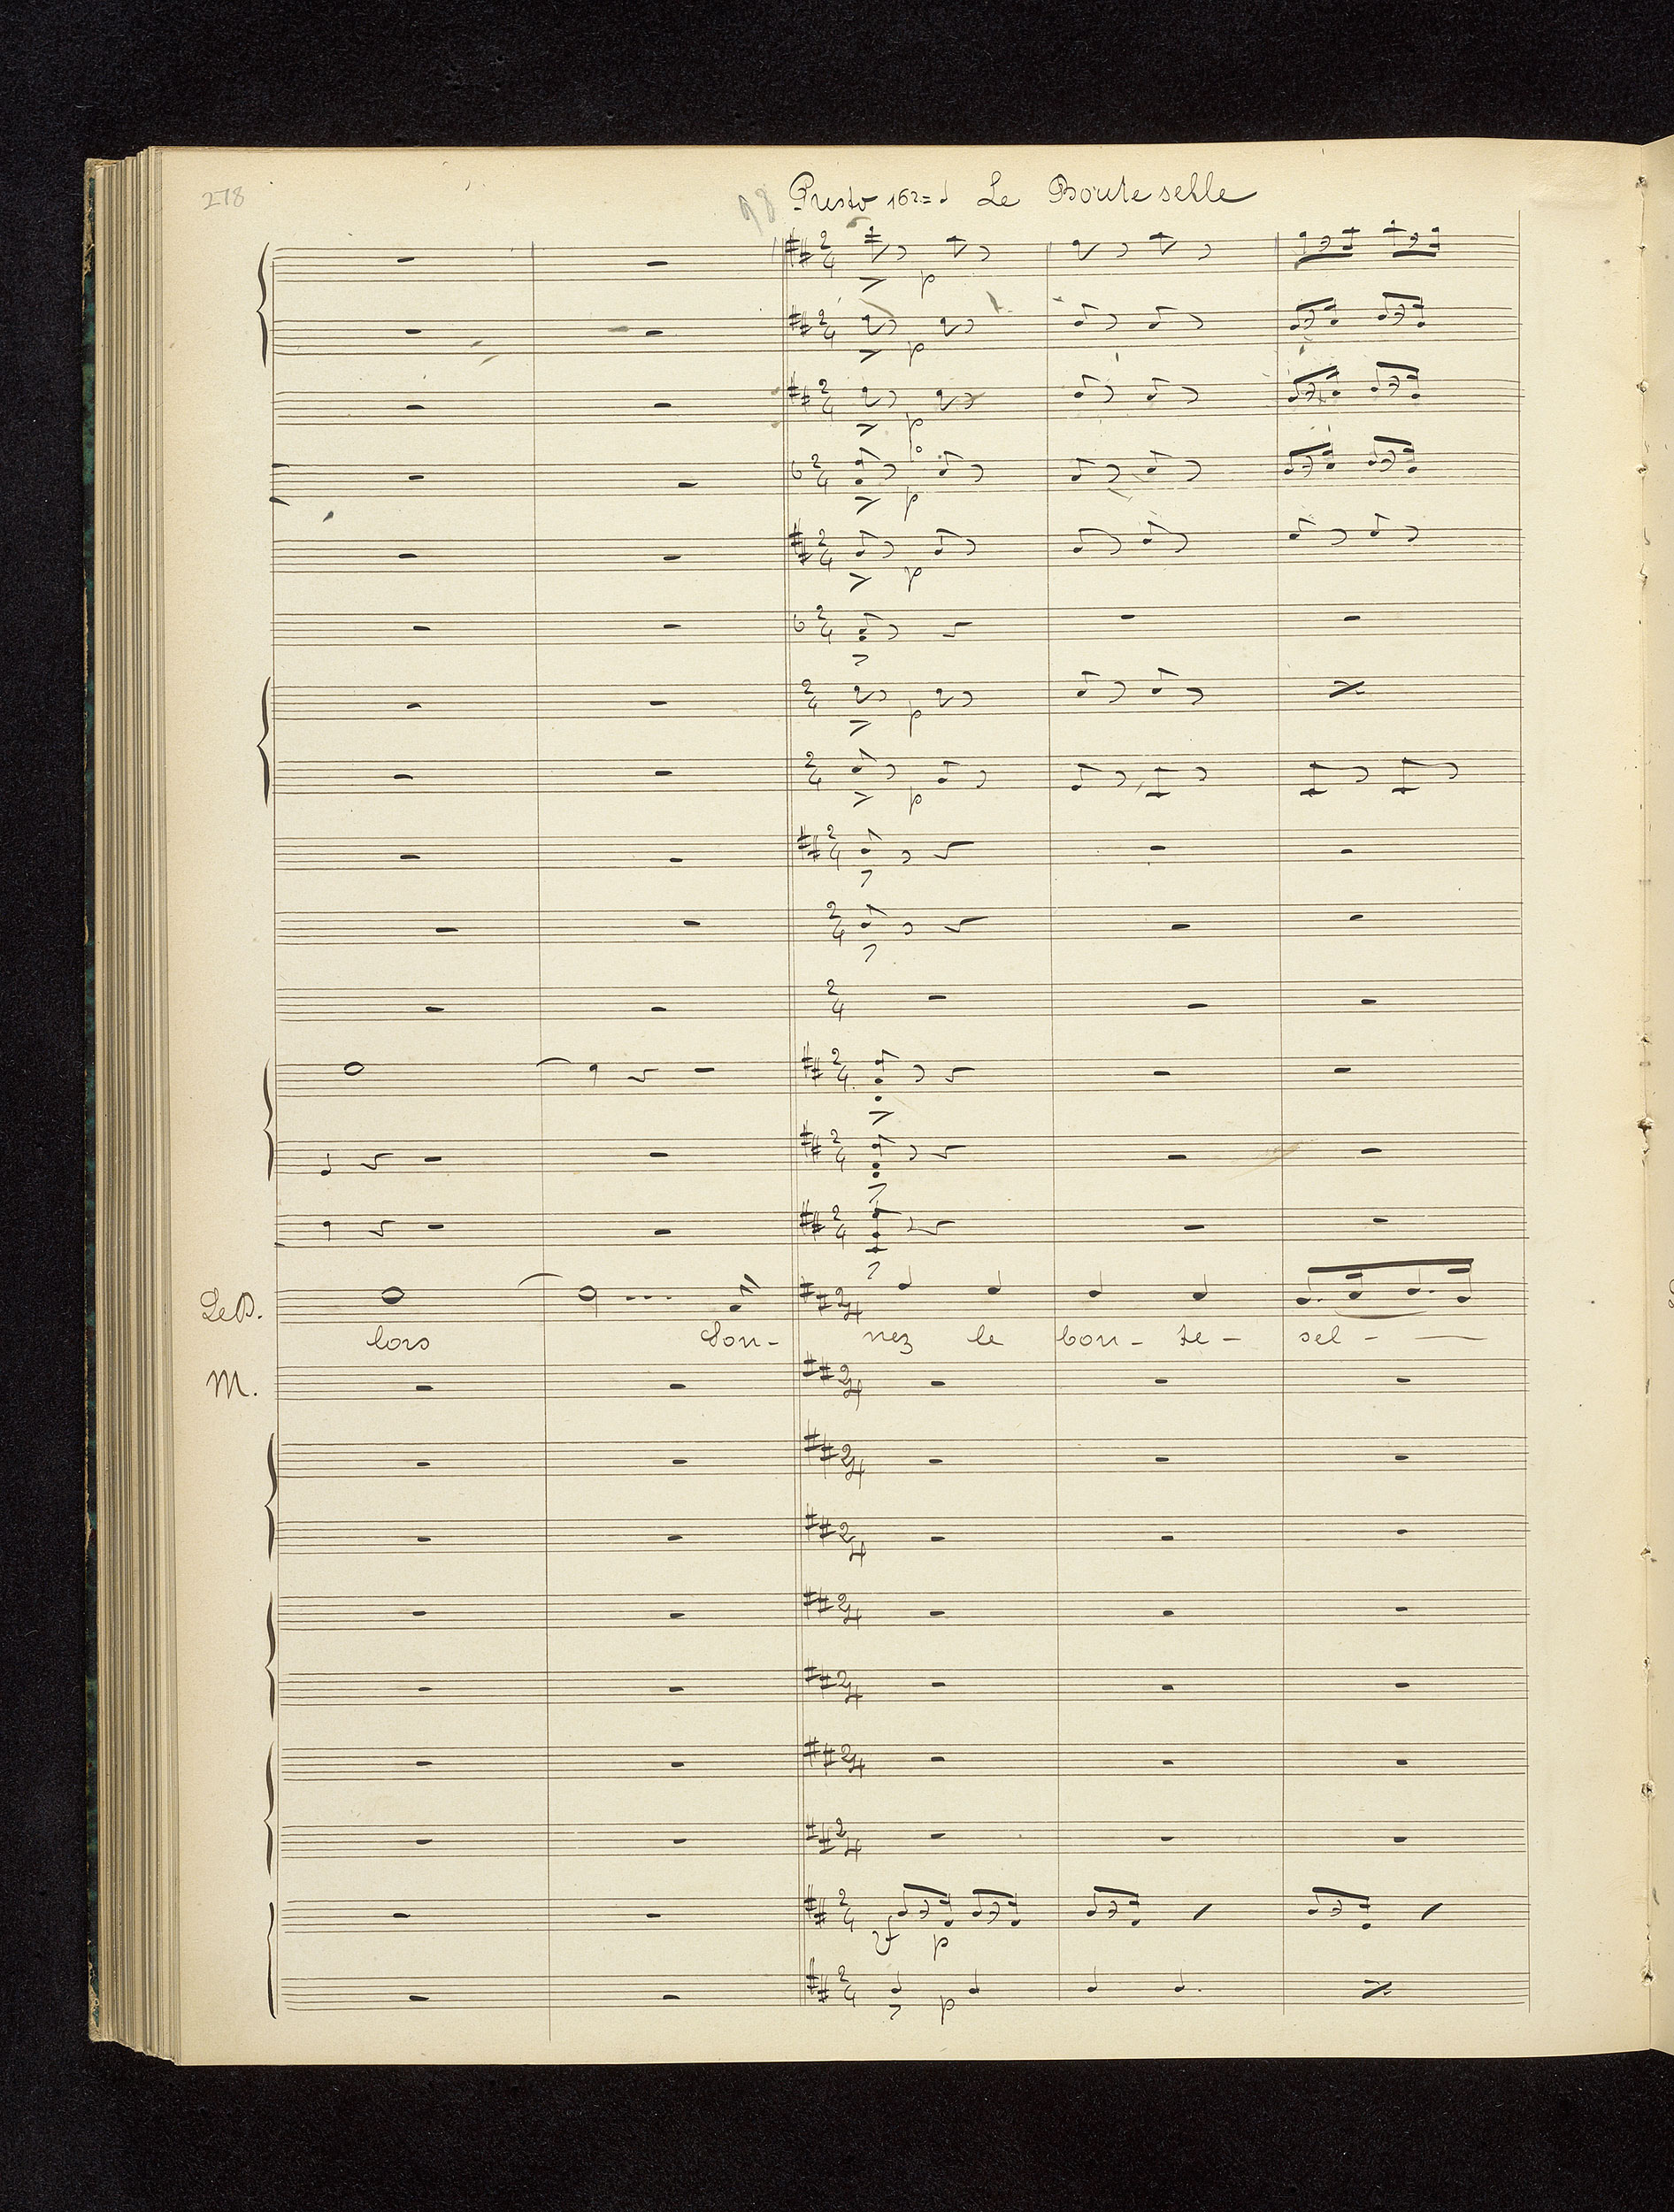 278
98 Presto 162 = ♩ Le Boute selle
p
p
p
p
p
p
p
Le P.
lors Son- nez le bou- te- sel-
M.
sf p
p